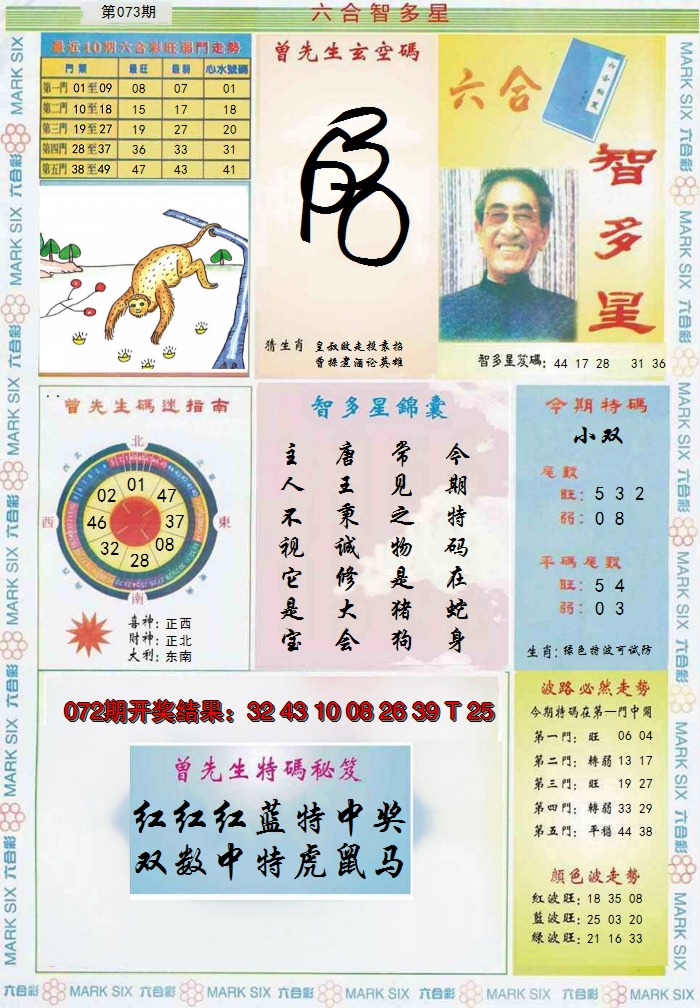 第073期
六合智多星
最近10期六合彩旺弱門走勢
門類 最旺 最弱 心水號碼
第一門 01至09 08 07 01
第二門 10至18 15 17 18
第三門 19至27 19 27 20
第四門 28至37 36 33 31
第五門 38至49 47 43 41
曾先生玄空碼
猜生肖 皇叔败走投袁绍
曹操煮酒论英雄
六合
智多星
智多星笈碼: 44 17 28 31 36
曾先生碼迷指南
北
西
東
南
02 01 47
46 37
32 28 08
喜神: 正西
财神: 正北
大利: 东南
智多星錦囊
今期特码在蛇身
常见之物是猪狗
唐王秉诚修大会
主人不视它是宝
今期特碼
小双
尾數
旺: 5 3 2
弱: 0 8
平碼尾數
旺: 5 4
弱: 0 3
生肖: 绿色特波可试防
072期开奖结果: 32 43 10 08 26 39 T 25
曾先生特碼秘笈
红红红蓝特中奖
双数中特虎鼠马
波路必然走勢
今期特碼在第一門中開
第一門: 旺 06 04
第二門: 轉弱 13 17
第三門: 旺 19 27
第四門: 轉弱 33 29
第五門: 平穩 44 38
顏色波走勢
紅波旺: 18 35 08
藍波旺: 25 03 20
綠波旺: 21 16 33
MARK SIX 六合彩 MARK SIX 六合彩 MARK SIX 六合彩 MARK SIX 六合彩